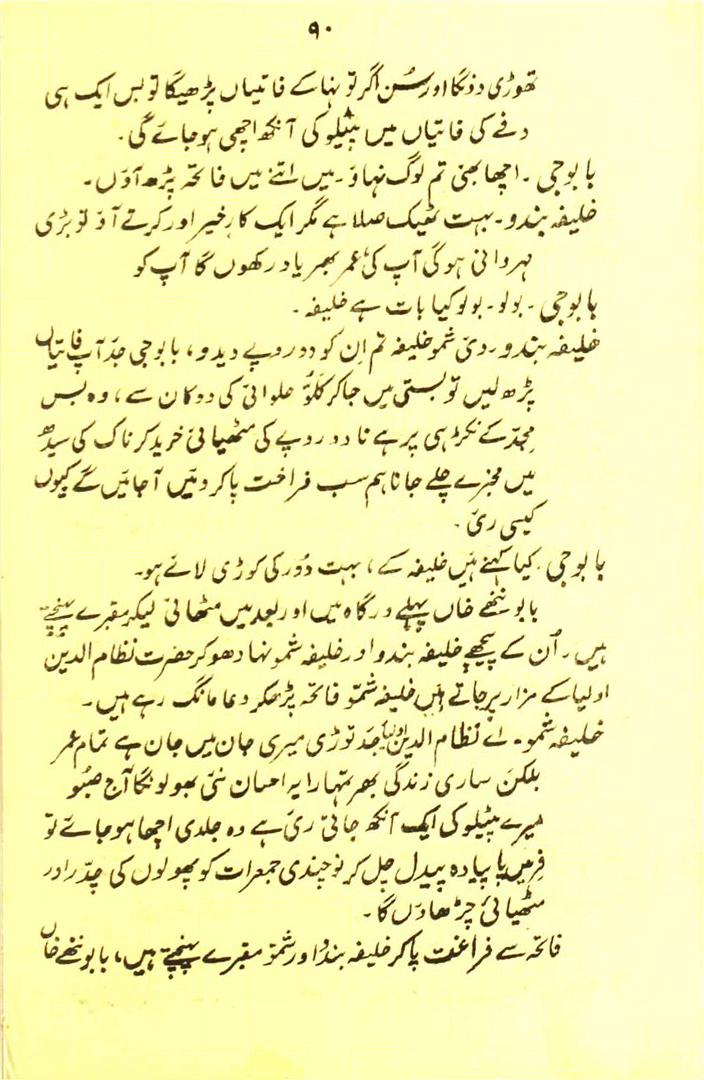 ۹۰
تھوڑی دونگا اور سُن اگر تو نہا کے فاتیاں پڑھیگا تو بس ایک ہی
دفے کی فاتیاں میں پٹیلو کی آنکھ اچھی ہو جائے گی۔
بابوجی ۔ اچھا بھئی تم لوگ نہاؤ ۔ میں اتنے میں فاتحہ پڑھ آؤں۔
خلیفہ بندو ۔ بہت ٹھیک صلا ہے مگر ایک کارِ خیر اور کرتے آؤ تو بڑی
مہروانی ہو گی آپ کی عمر بھر یاد رکھوں گا آپ کو
بابوجی ۔ بولو ۔ بولو کیا بات ہے خلیفہ ۔
خلیفہ بندو ۔ دئی شمو خلیفہ تم اِن کو دو روپے دیدو، بابوجی جد آپ فاتیاں
پڑھ لیں تو بستی میں جا کر کلّو حلوائی کی دوکان سے، وہ بس
مجّد کے نکڑ ہی پر ہے نا دو روپے کی مٹھیائی خرید کر ناک کی سیدھ
میں مخبرے چلے جانا ہم سب فراخت پاکر وئیں آجائیں گے کیوں
کیسی رئی ۔
بابوجی ۔ کیا کہنے ہیں خلیفہ کے، بہت دُور کی کوڑی لائے ہو۔
بابو ننھے خاں پہلے درگاہ میں اور بعد میں مٹھائی لیکر مقبرے پہنچتے
ہیں۔ اُن کے پیچھے خلیفہ بندو اور خلیفہ شمو نہا دھو کر حضرت نظام الدین
اولیا کے مزار پر جاتے ہیں خلیفہ شمّو فاتحہ پڑھکر دعا مانگ رہے ہیں۔
خلیفہ شمو ۔ اے نظام الدین اولیا جد توڑی میری جان میں جان ہے تمام عمر
بلکن ساری زندگی بھر تمہارا یہ احسان نئی بھولونگا آج صبُو
میرے پٹیلو کی ایک آنکھ جاتی رئی ہے وہ جلدی اچھا ہو جائے تو
فِر میں پا پیادہ پیدل چل کر نوچندی جمعرات کو پھولوں کی چدّر اور
مٹھیائی چڑھاؤں گا۔
فاتحہ سے فراغت پا کر خلیفہ بندو اور شمّو مقبرے پہنچتے ہیں، بابو ننھے خاں